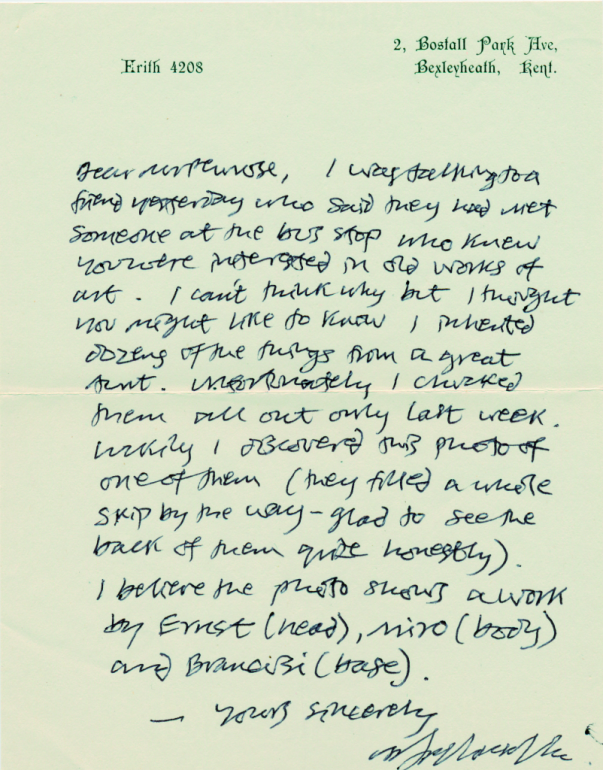 2, Bostall Park Ave,
Erith 4208
Bexleyheath, Kent.
Dear, I was talking to a
friend yesterday who said they had met
someone at the bus stop who knew
you were interested in old works of
art. I can't think why but I thought
you might like to know I inherited
dozens of the things from a great
Aunt. unfortunately I chucked
them all out only last week.
luckily I discovered this photo of
one of them (they filled a whole
skip by the way - glad to see the
back of them quite honestly).
I believe the photo shows a work
by Ernst (head), Miro (body)
and Brancusi (base).
— Yours sincerely